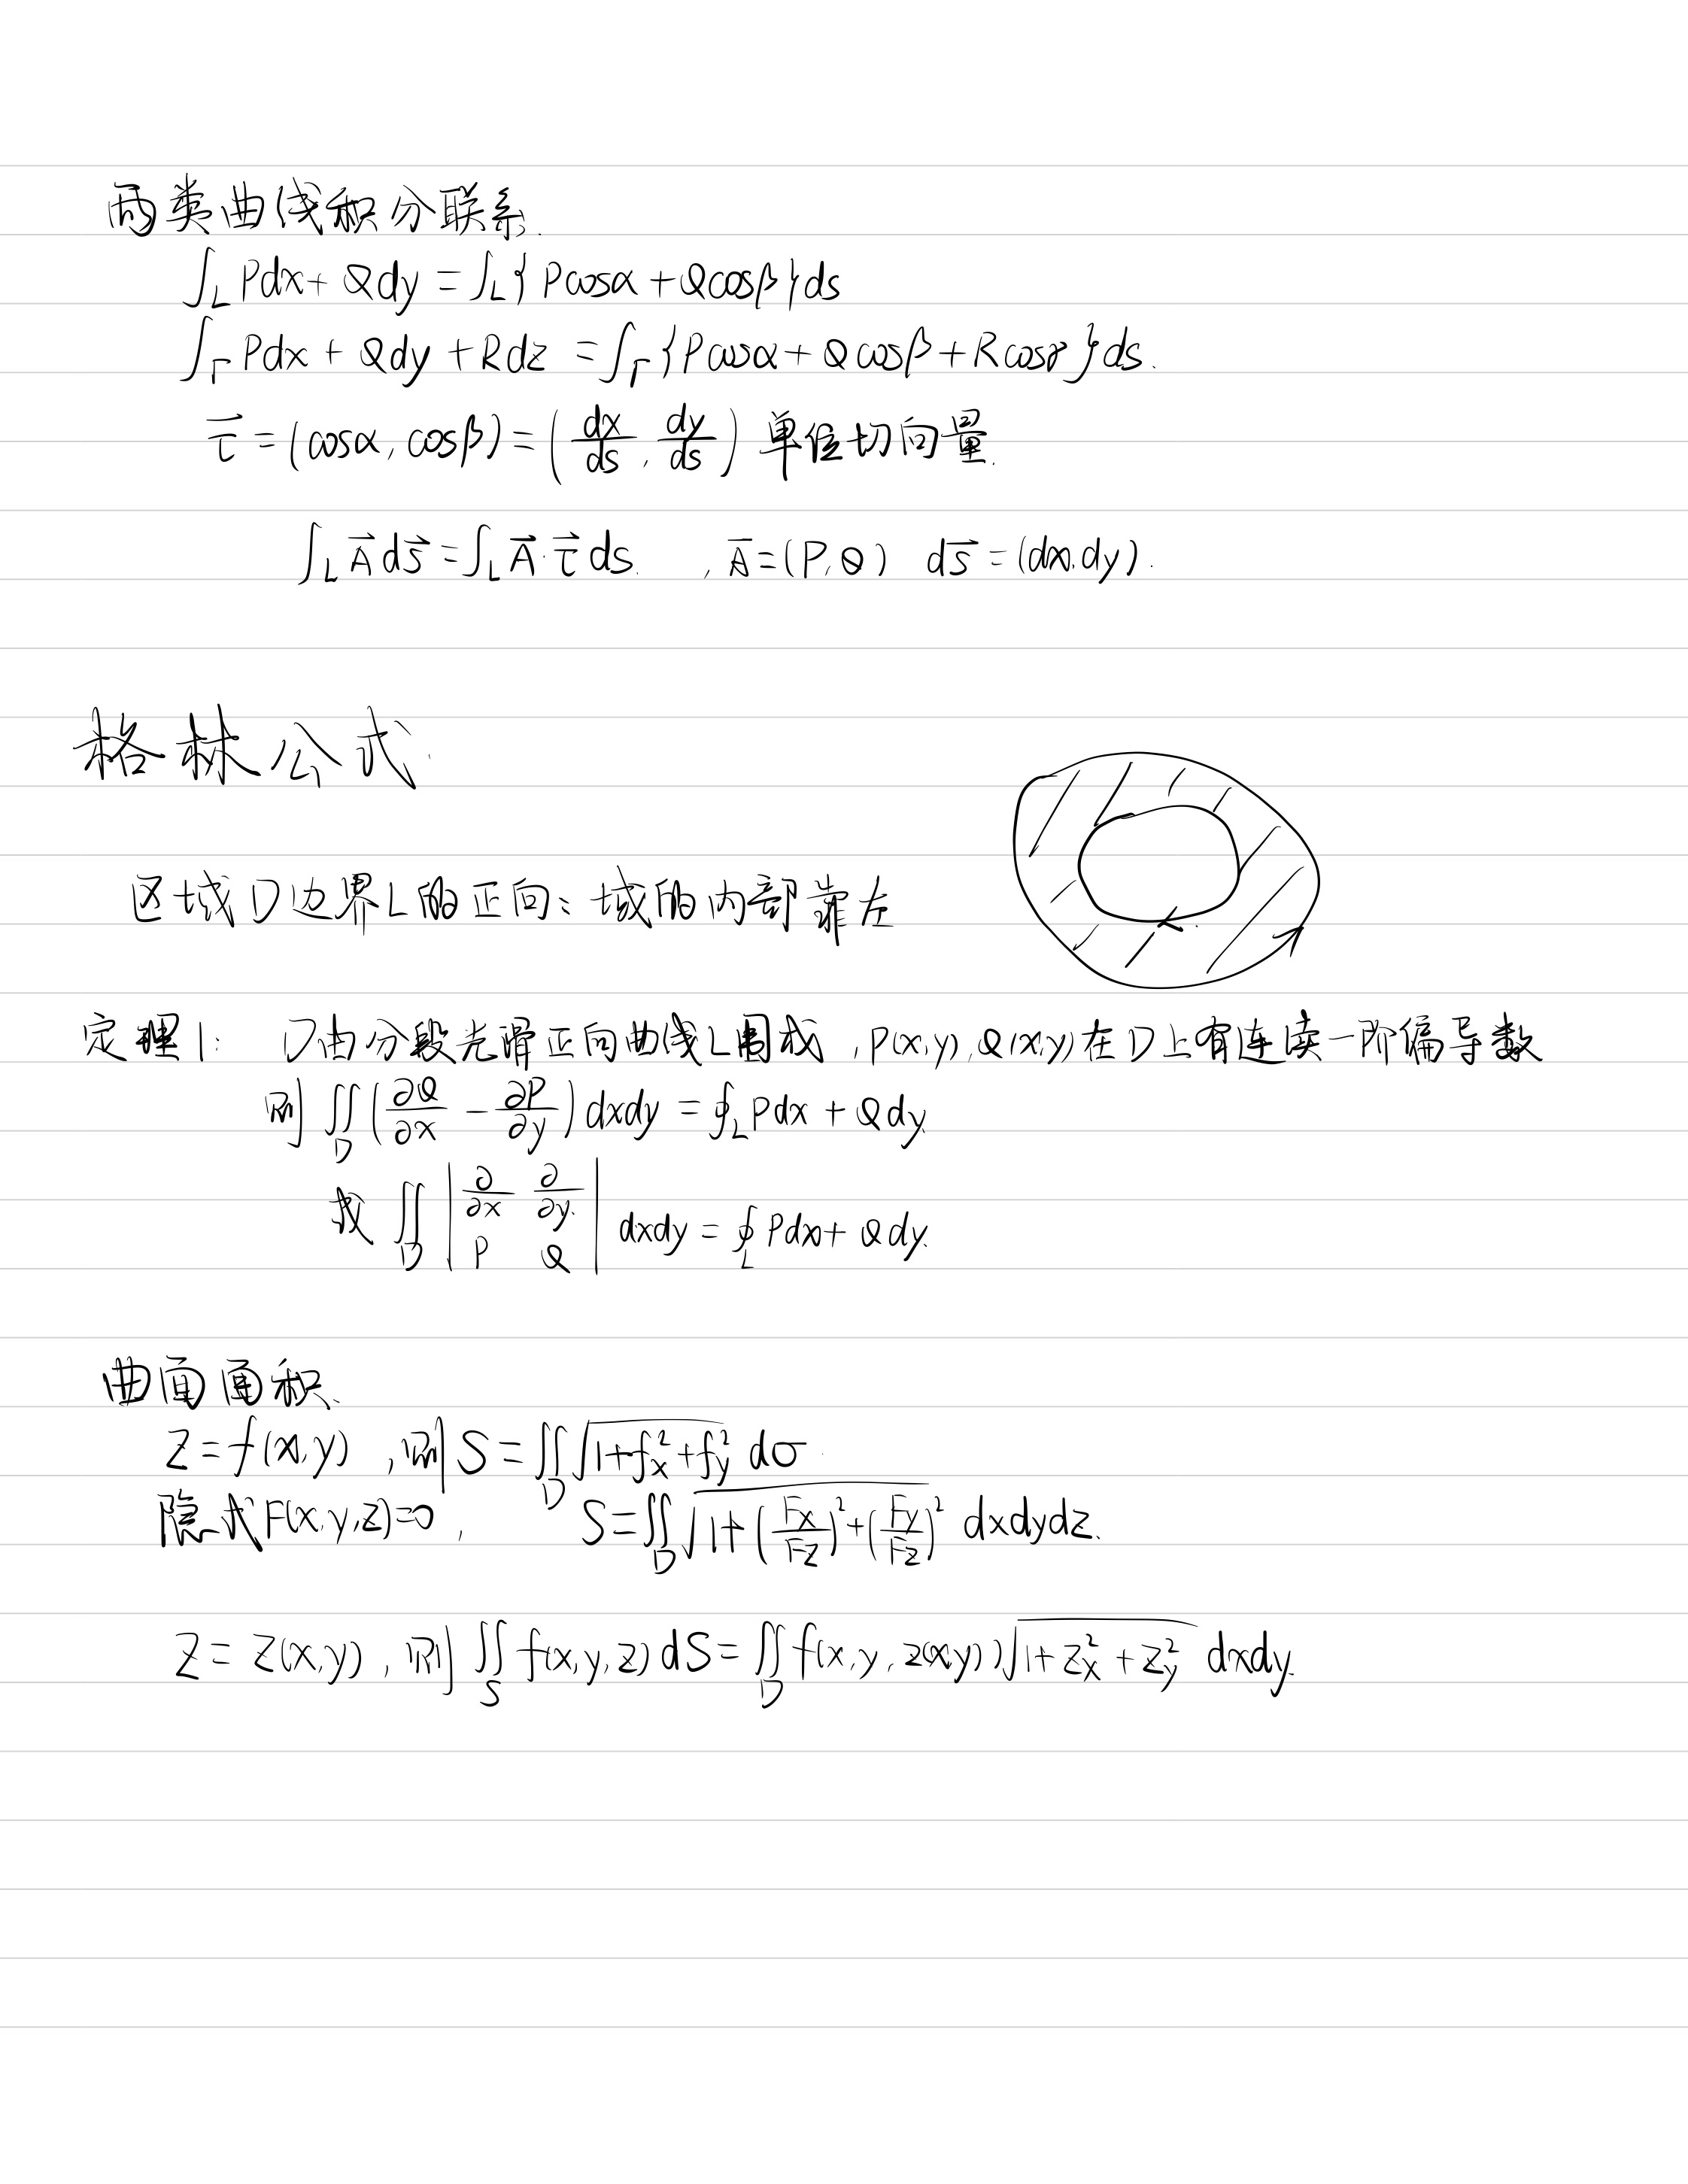 两类曲线积分联系.
∫_L Pdx + Qdy = ∫_L {Pcosα + Qcosβ}ds
∫_Γ Pdx + Qdy + Rdz = ∫_Γ {Pcosα + Qcosβ + Rcosγ}ds.
τ⃗ = (cosα, cosβ) = (dx/ds, dy/ds) 单位切向量.
∫_L A⃗ds⃗ = ∫_L A⃗·τ⃗ ds. , A⃗ = (P, Q) ds⃗ = (dx, dy).
格林公式.
区域D边界L的正向: 域的内部靠左
定理1: D由分段光滑正向曲线L围成, P(x,y), Q(x,y)在D上有连续一阶偏导数
则 ∬_D (∂Q/∂x − ∂P/∂y) dxdy = ∮_L Pdx + Qdy.
或 ∬_D | ∂/∂x ∂/∂y ; P Q | dxdy = ∮_L Pdx + Qdy.
曲面面积.
Z = f(x,y) , 则 S = ∬_D √(1+f_x²+f_y²) dσ.
隐式F(x,y,z)=0, S = ∬_D √(1+(Fx/Fz)²+(Fy/Fz)²) dxdydz.
Z = Z(x,y), 则 ∬_S f(x,y,z)dS = ∬_D f(x,y,z(x,y))√(1+Z_x²+Z_y²) dxdy.